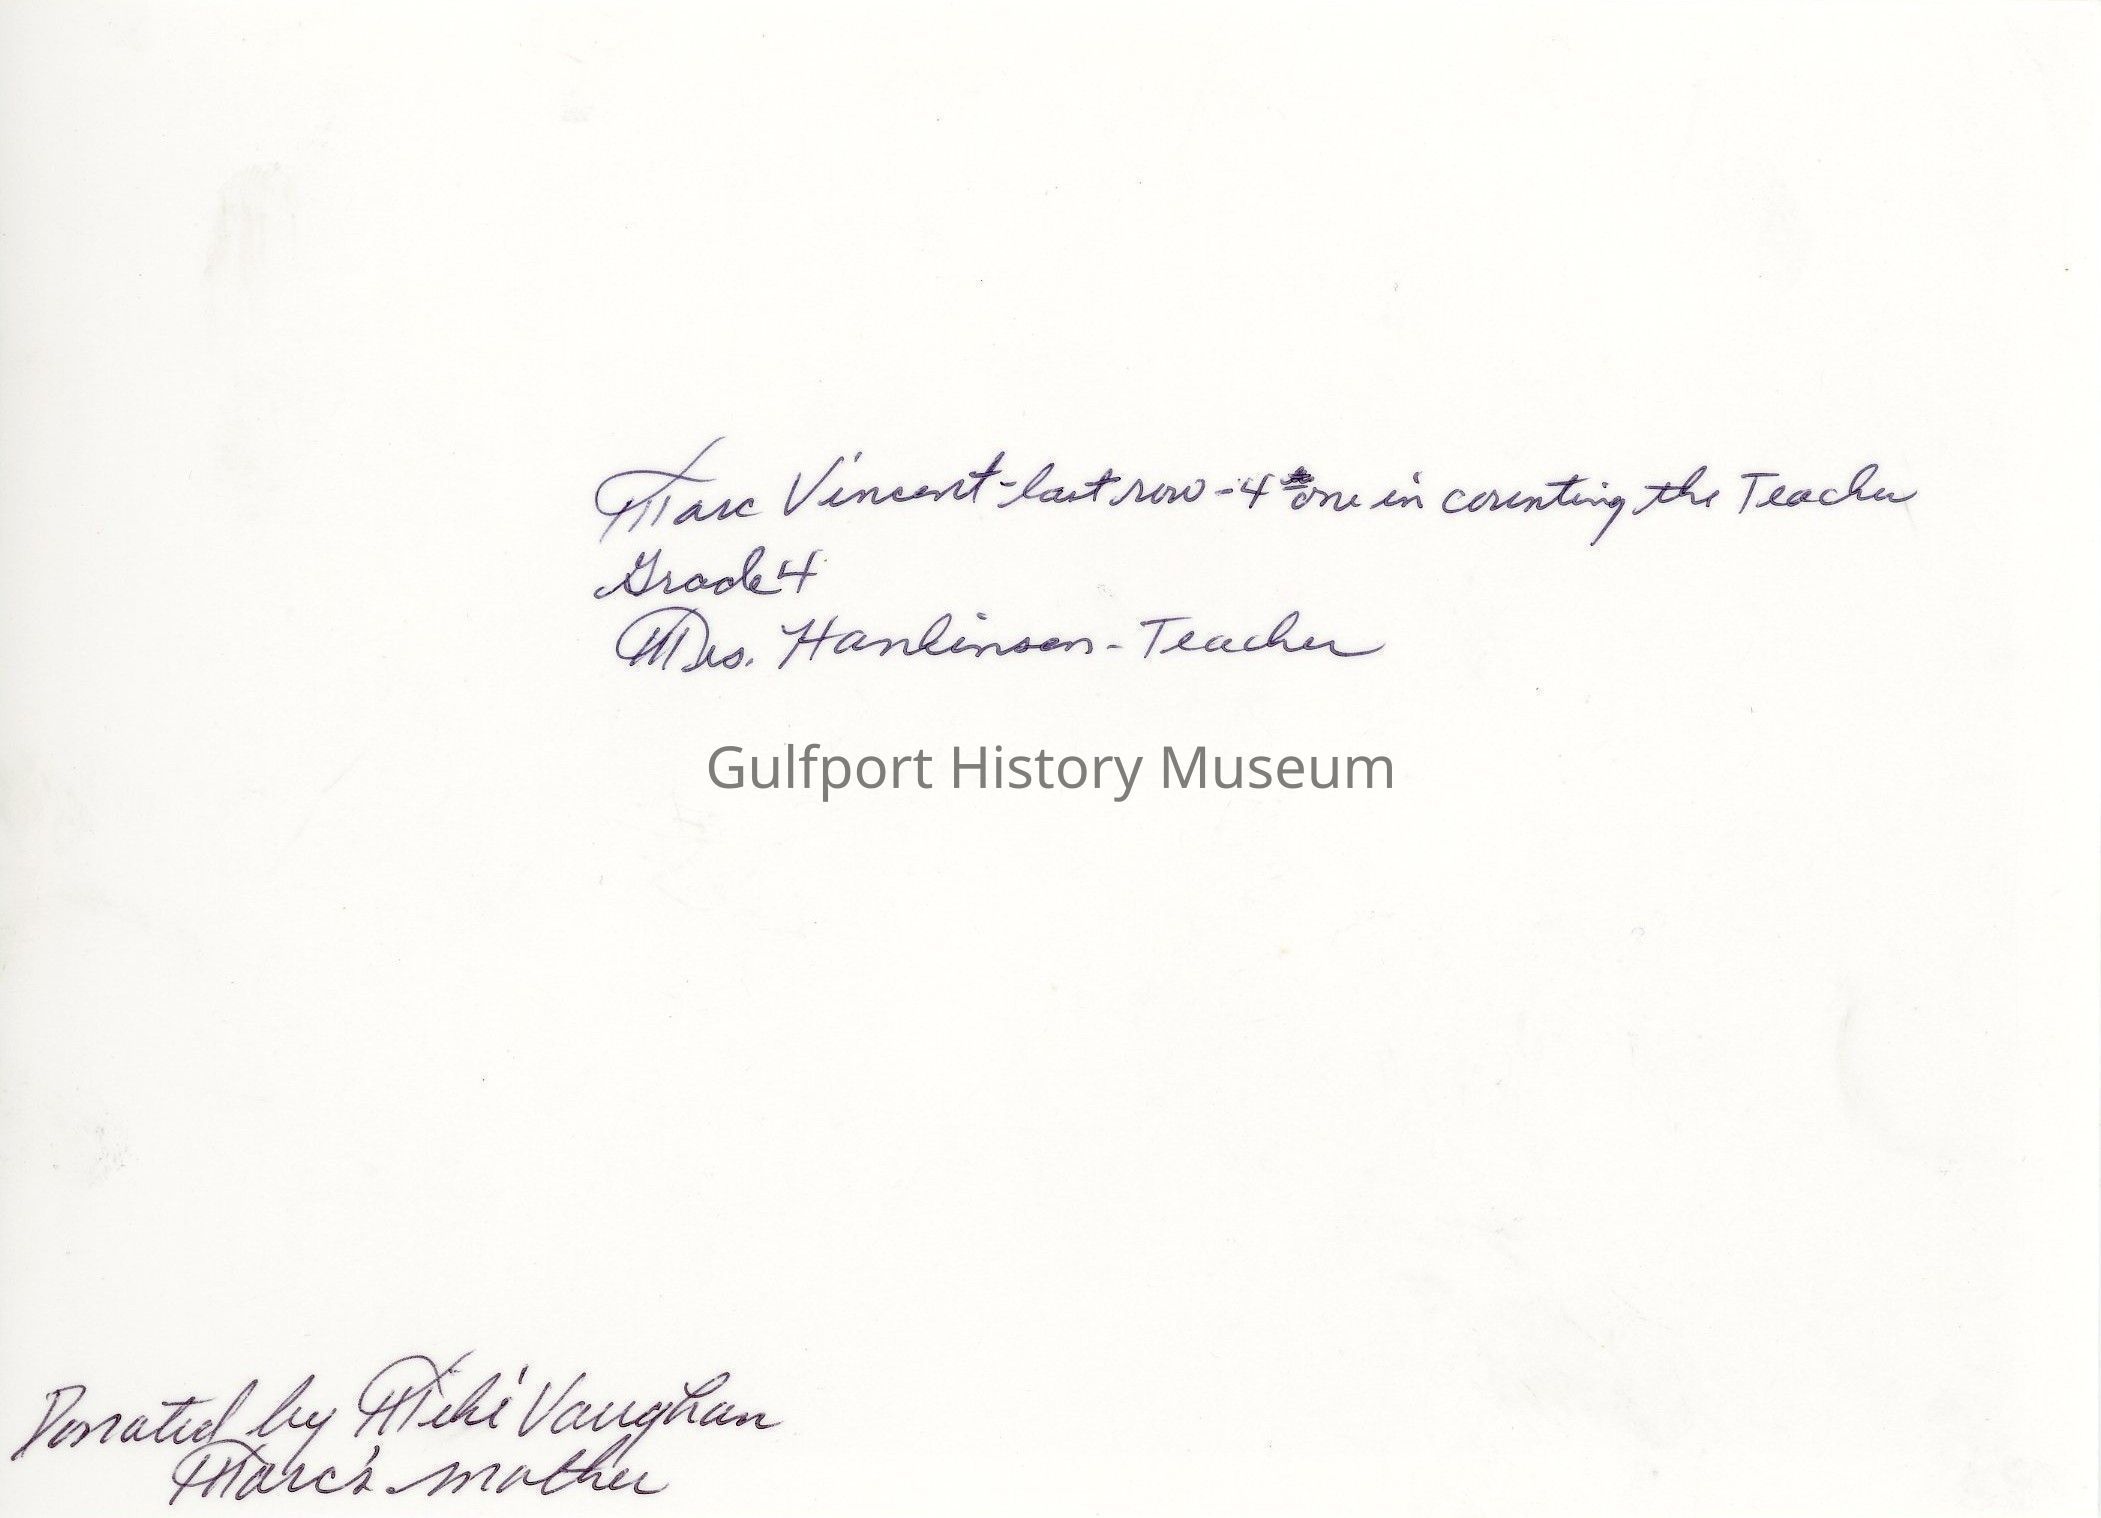 Marc Vincent - last row - 4th one in counting the Teacher
Grade 4
Mrs. Hankinson - Teacher
Gulfport History Museum
Donated by Meké Vaughan
Marc's mother